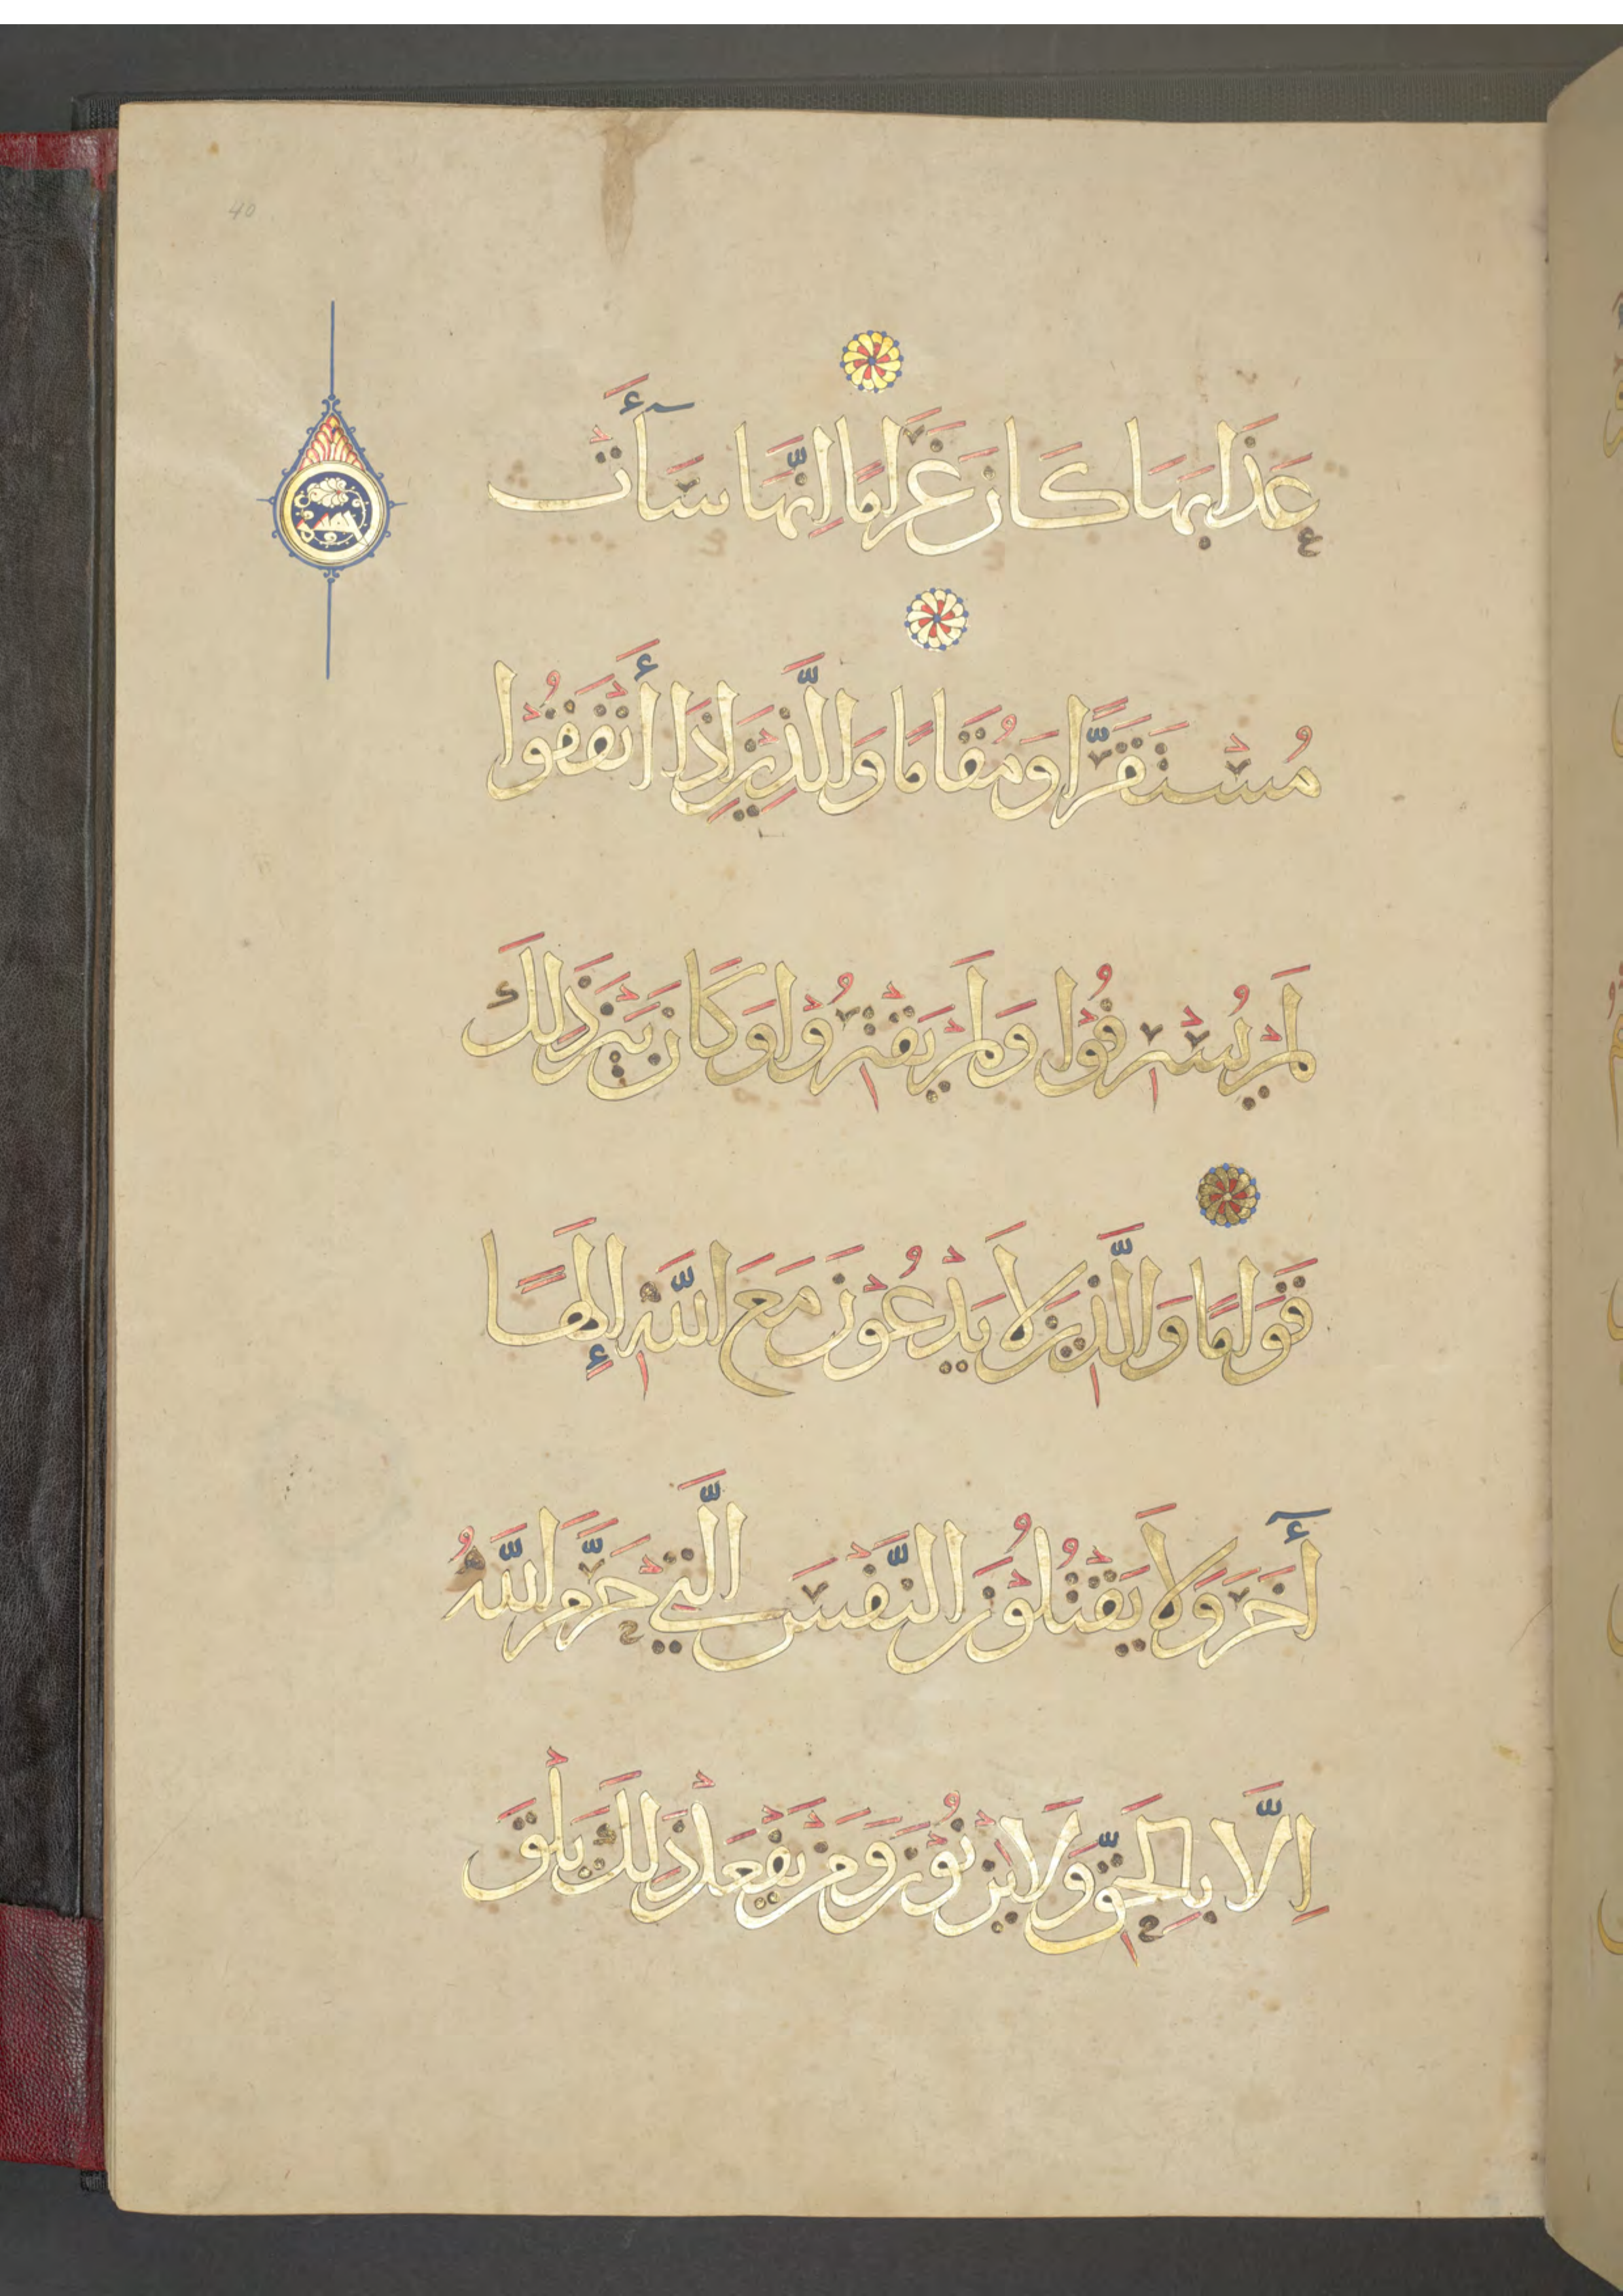 40
عَذَابَهَا كَانَ غَرَامًا اِنَّهَا سَآءَتْ
خمسة
مُسْتَقَرًّا وَمُقَامًا وَالَّذِينَ اِذَا أَنْفَقُوا
لَمْ يُسْرِفُوْا وَلَمْ يَقْتِرُوْا وَكَانَ بَيْنَ ذَلِكَ
قَوَامًا وَالَّذِينَ لَا يَدْعُوْنَ مَعَ اللَّهِ إِلَهًا
أَخَرَ وَلَا يَقْتُلُوْنَ النَّفْسَ الَّتِي حَرَّمَ اللَّهُ
اِلَّا بِالْحَقِّ وَلَا يَزْنُوْنَ وَمَنْ يَفْعَلْ ذَلِكَ يَلْقَ